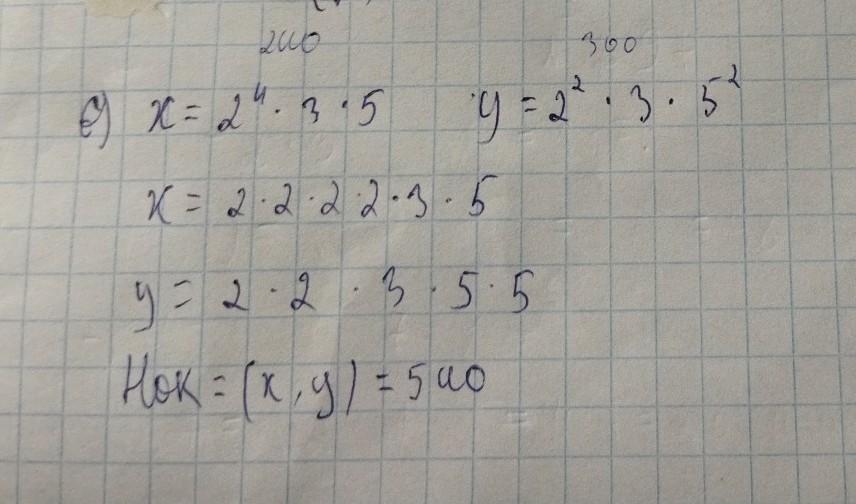 240 300
е) x = 2⁴ · 3 · 5 y = 2² · 3 · 5²
x = 2 · 2 · 2 · 2 · 3 · 5
y = 2 · 2 · 3 · 5 · 5
Нок = (x, y) = 540